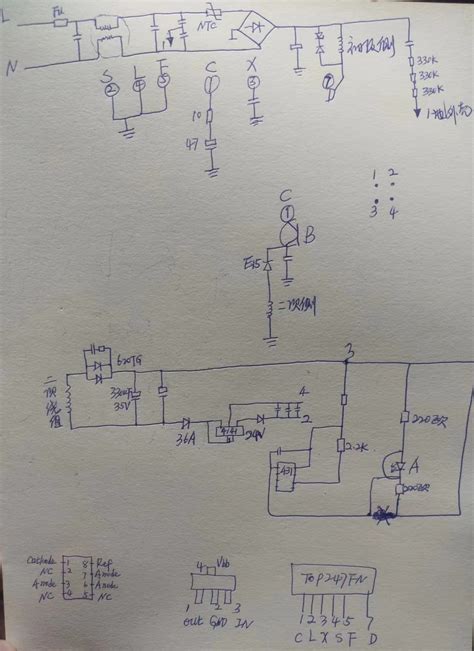 L
Fu
N
NTC
S
L
F
C
X
2
4
5
3
7
10
47
330K
330K
330K
1 2
3 4
C
1
B
E15
二次侧
3
620TG
二次绕组
3300μF
35V
36A
4
2
24V
431
2.2K
220欧
A
Cathode 1 8 Ref
NC 2 7 Anode
Anode 3 6 Anode
NC 4 5 NC
4 Vbb
1 2 3
out GND IN
TOP247FN
1 2 3 4 5 7
C L X S F D